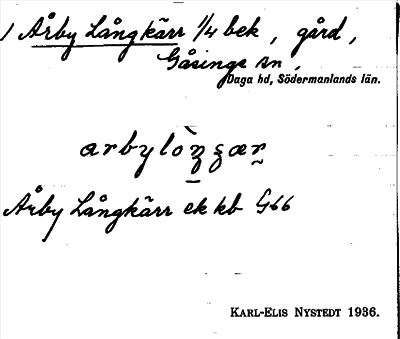 1 Årby Långkärr 1/4 bek, gård,
Gåsinge sn,
Daga hd, Södermanlands län.
Årby Långkärr ek kb G66
KARL-ELIS NYSTEDT 1936.